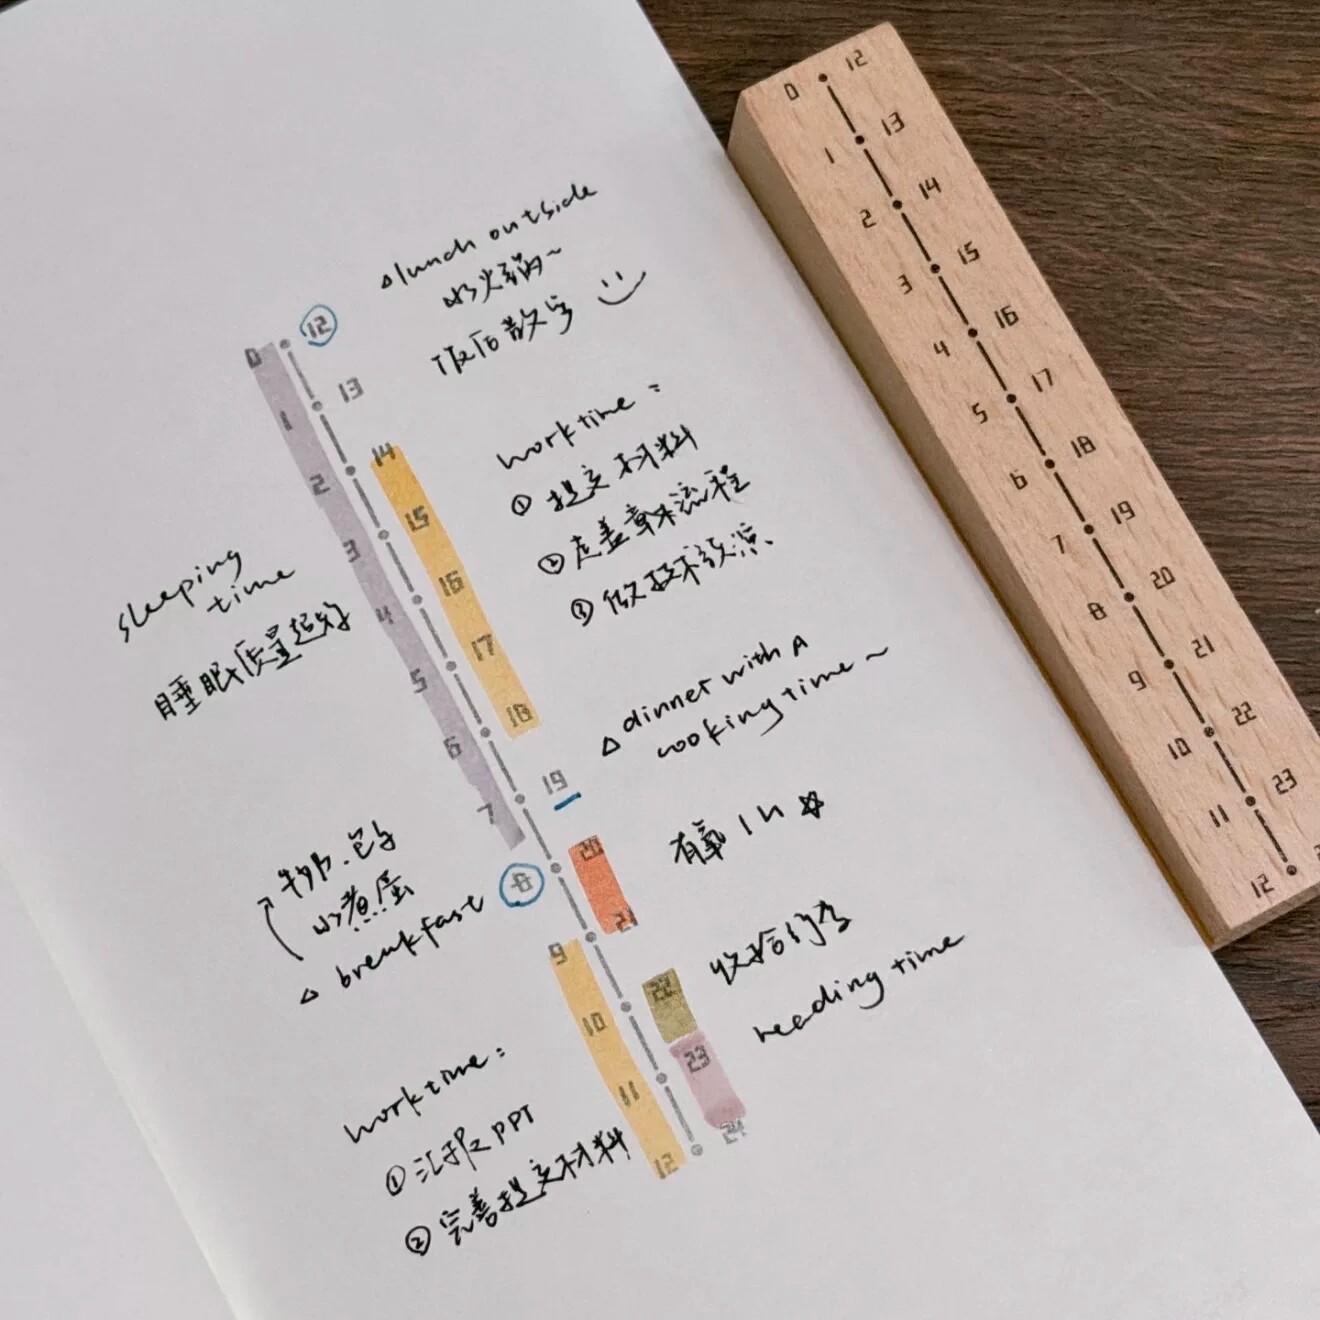 △lunch outside
小火锅~
饭后散步
work time:
① 提交材料
② 走盖章流程
③ 做技术政策
△ dinner with A
cooking time~
有氧1h
收拾行李
reading time
sleeping
time
睡眠质量超好
牛奶、包子
水煮蛋
△ breakfast
work time:
① 汇报PPT
② 完善提交材料
0 12
1 13
2 14
3 15
4 16
5 17
6 18
7 19
8 20
9 21
10 22
11 23
12 24
0 12
1 13
2 14
3 15
4 16
5 17
6 18
7 19
8 20
9 21
10 22
11 23
12